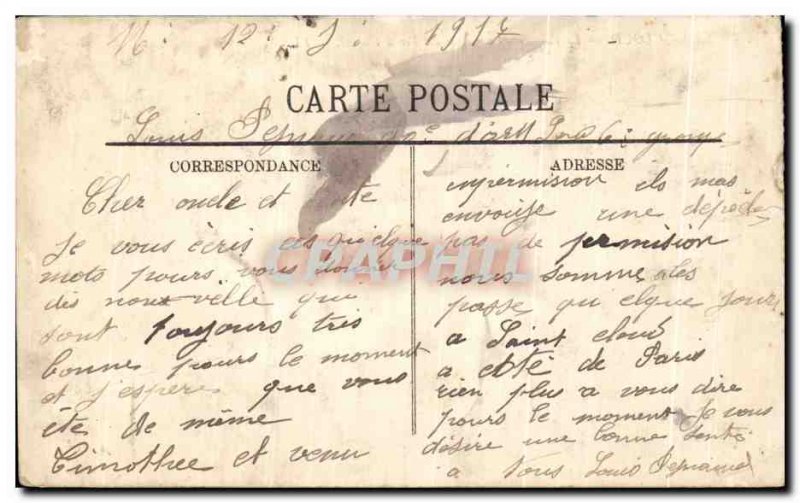 12 1917
CARTE POSTALE
Louis d'art 6e groupe
CORRESPONDANCE
Cher oncle et tante
Je vous écris ces quelque
mots pours vous donner
dis nouvelle que
sont toujours très
bonne pours le moment
et j'espere que vous
ete de même
Timothee et venu
ADRESSE
enpermision ils mas
envoije une dépêche
pas de permision
nous somme ales
passe qu'elque jours
a Saint cloud
a coté de Paris
rien plus a vous dire
pours le moment Je vous
désire une bonne Santé
a tous Louis
CPAPHIL